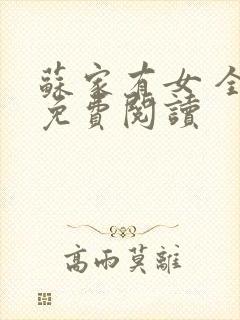 蘇家有女 全
免費閱讀
高雨莫離